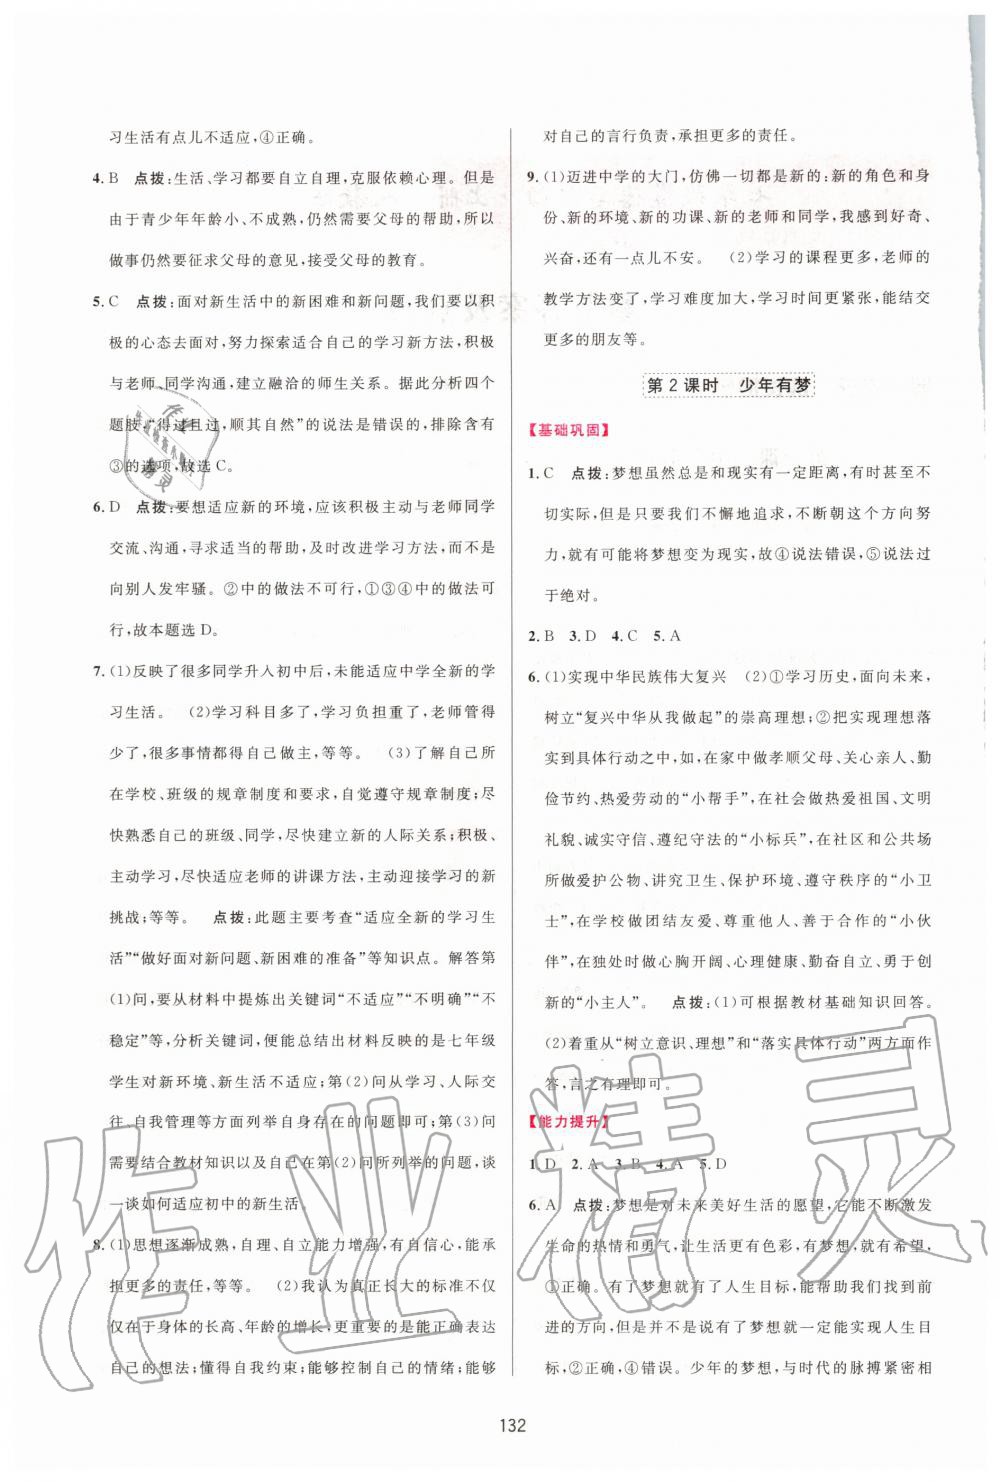 习生活有点儿不适应,④正确。
4. B 点拨:生活、学习都要自立自理,克服依赖心理。但是
由于青少年年龄小、不成熟,仍然需要父母的帮助,所以
做事仍然要征求父母的意见,接受父母的教育。
5. C 点拨:面对新生活中的新困难和新问题,我们要以积
极的心态去面对,努力探索适合自己的学习新方法,积极
与老师、同学沟通,建立融洽的师生关系。据此分析四个
题肢,“得过且过,顺其自然”的说法是错误的,排除含有
③的选项,故选C。
6. D 点拨:要想适应新的环境,应该积极主动与老师同学
交流、沟通,寻求适当的帮助,及时改进学习方法,而不是
向别人发牢骚。②中的做法不可行,①③④中的做法可
行,故本题选D。
7. (1)反映了很多同学升入初中后,未能适应中学全新的学
习生活。 (2)学习科目多了,学习负担重了,老师管得
少了,很多事情都得自己做主,等等。 (3)了解自己所
在学校、班级的规章制度和要求,自觉遵守规章制度;尽
快熟悉自己的班级、同学,尽快建立新的人际关系;积极、
主动学习,尽快适应老师的讲课方法,主动迎接学习的新
挑战;等等。 点拨:此题主要考查“适应全新的学习生
活”“做好面对新问题、新困难的准备”等知识点。解答第
(1)问,要从材料中提炼出关键词“不适应”“不明确”“不
稳定”等,分析关键词,便能总结出材料反映的是七年级
学生对新环境、新生活不适应;第(2)问从学习、人际交
往、自我管理等方面列举自身存在的问题即可;第(3)问
需要结合教材知识以及在第(2)问所列举的问题,谈
一谈如何适应初中的新生活。
8. (1)思想逐渐成熟,自理、自立能力增强,有自信心,能承
担更多的责任,等等。 (2)我认为真正长大的标准不仅
仅在于身体的长高、年龄的增长,更重要的是能正确表达
自己的想法;懂得自我约束;能够控制自己的情绪;能够
对自己的言行负责,承担更多的责任。
9. (1)迈进中学的大门,仿佛一切都是新的:新的角色和身
份、新的环境、新的功课、新的老师和同学,我感到好奇、
兴奋,还有一点儿不安。 (2)学习的课程更多,老师的
教学方法变了,学习难度加大,学习时间更紧张,能结交
更多的朋友等。
第2课时 少年有梦
【基础巩固】
1. C 点拨:梦想虽然总是和现实有一定距离,有时甚至不
切实际,但是只要我们不懈地追求,不断朝这个方向努
力,就有可能将梦想变为现实,故④说法错误,⑤说法过
于绝对。
2. B 3. D 4. C 5. A
6. (1)实现中华民族伟大复兴 (2)①学习历史,面向未来,
树立“复兴中华从我做起”的崇高理想;②把实现理想落
实到具体行动之中,如,在家中做孝顺父母、关心亲人、勤
俭节约、热爱劳动的“小帮手”,在社会做热爱祖国、文明
礼貌、诚实守信、遵纪守法的“小标兵”,在社区和公共场
所做爱护公物、讲究卫生、保护环境、遵守秩序的“小卫
士”,在学校做团结友爱、尊重他人、善于合作的“小伙
伴”,在独处时做心胸开阔、心理健康、勤奋自立、勇于创
新的“小主人”。 点拨:(1)可根据教材基础知识回答。
(2)着重从“树立意识、理想”和“落实具体行动”两方面作
答,言之有理即可。
【能力提升】
1. D 2. A 3. B 4. A 5. D
6. A 点拨:梦想是对未来美好生活的愿望,它能不断激发
生命的热情和勇气,让生活更有色彩,有梦想,就有希望,
①正确。有了梦想就有了人生目标,能帮助我们有前
进的方向,但并不是说有了梦想就一定能实现人生目
标,②正确,④错误。少年的梦想,与时代的脉搏紧密相
132
作业精灵
作业精灵